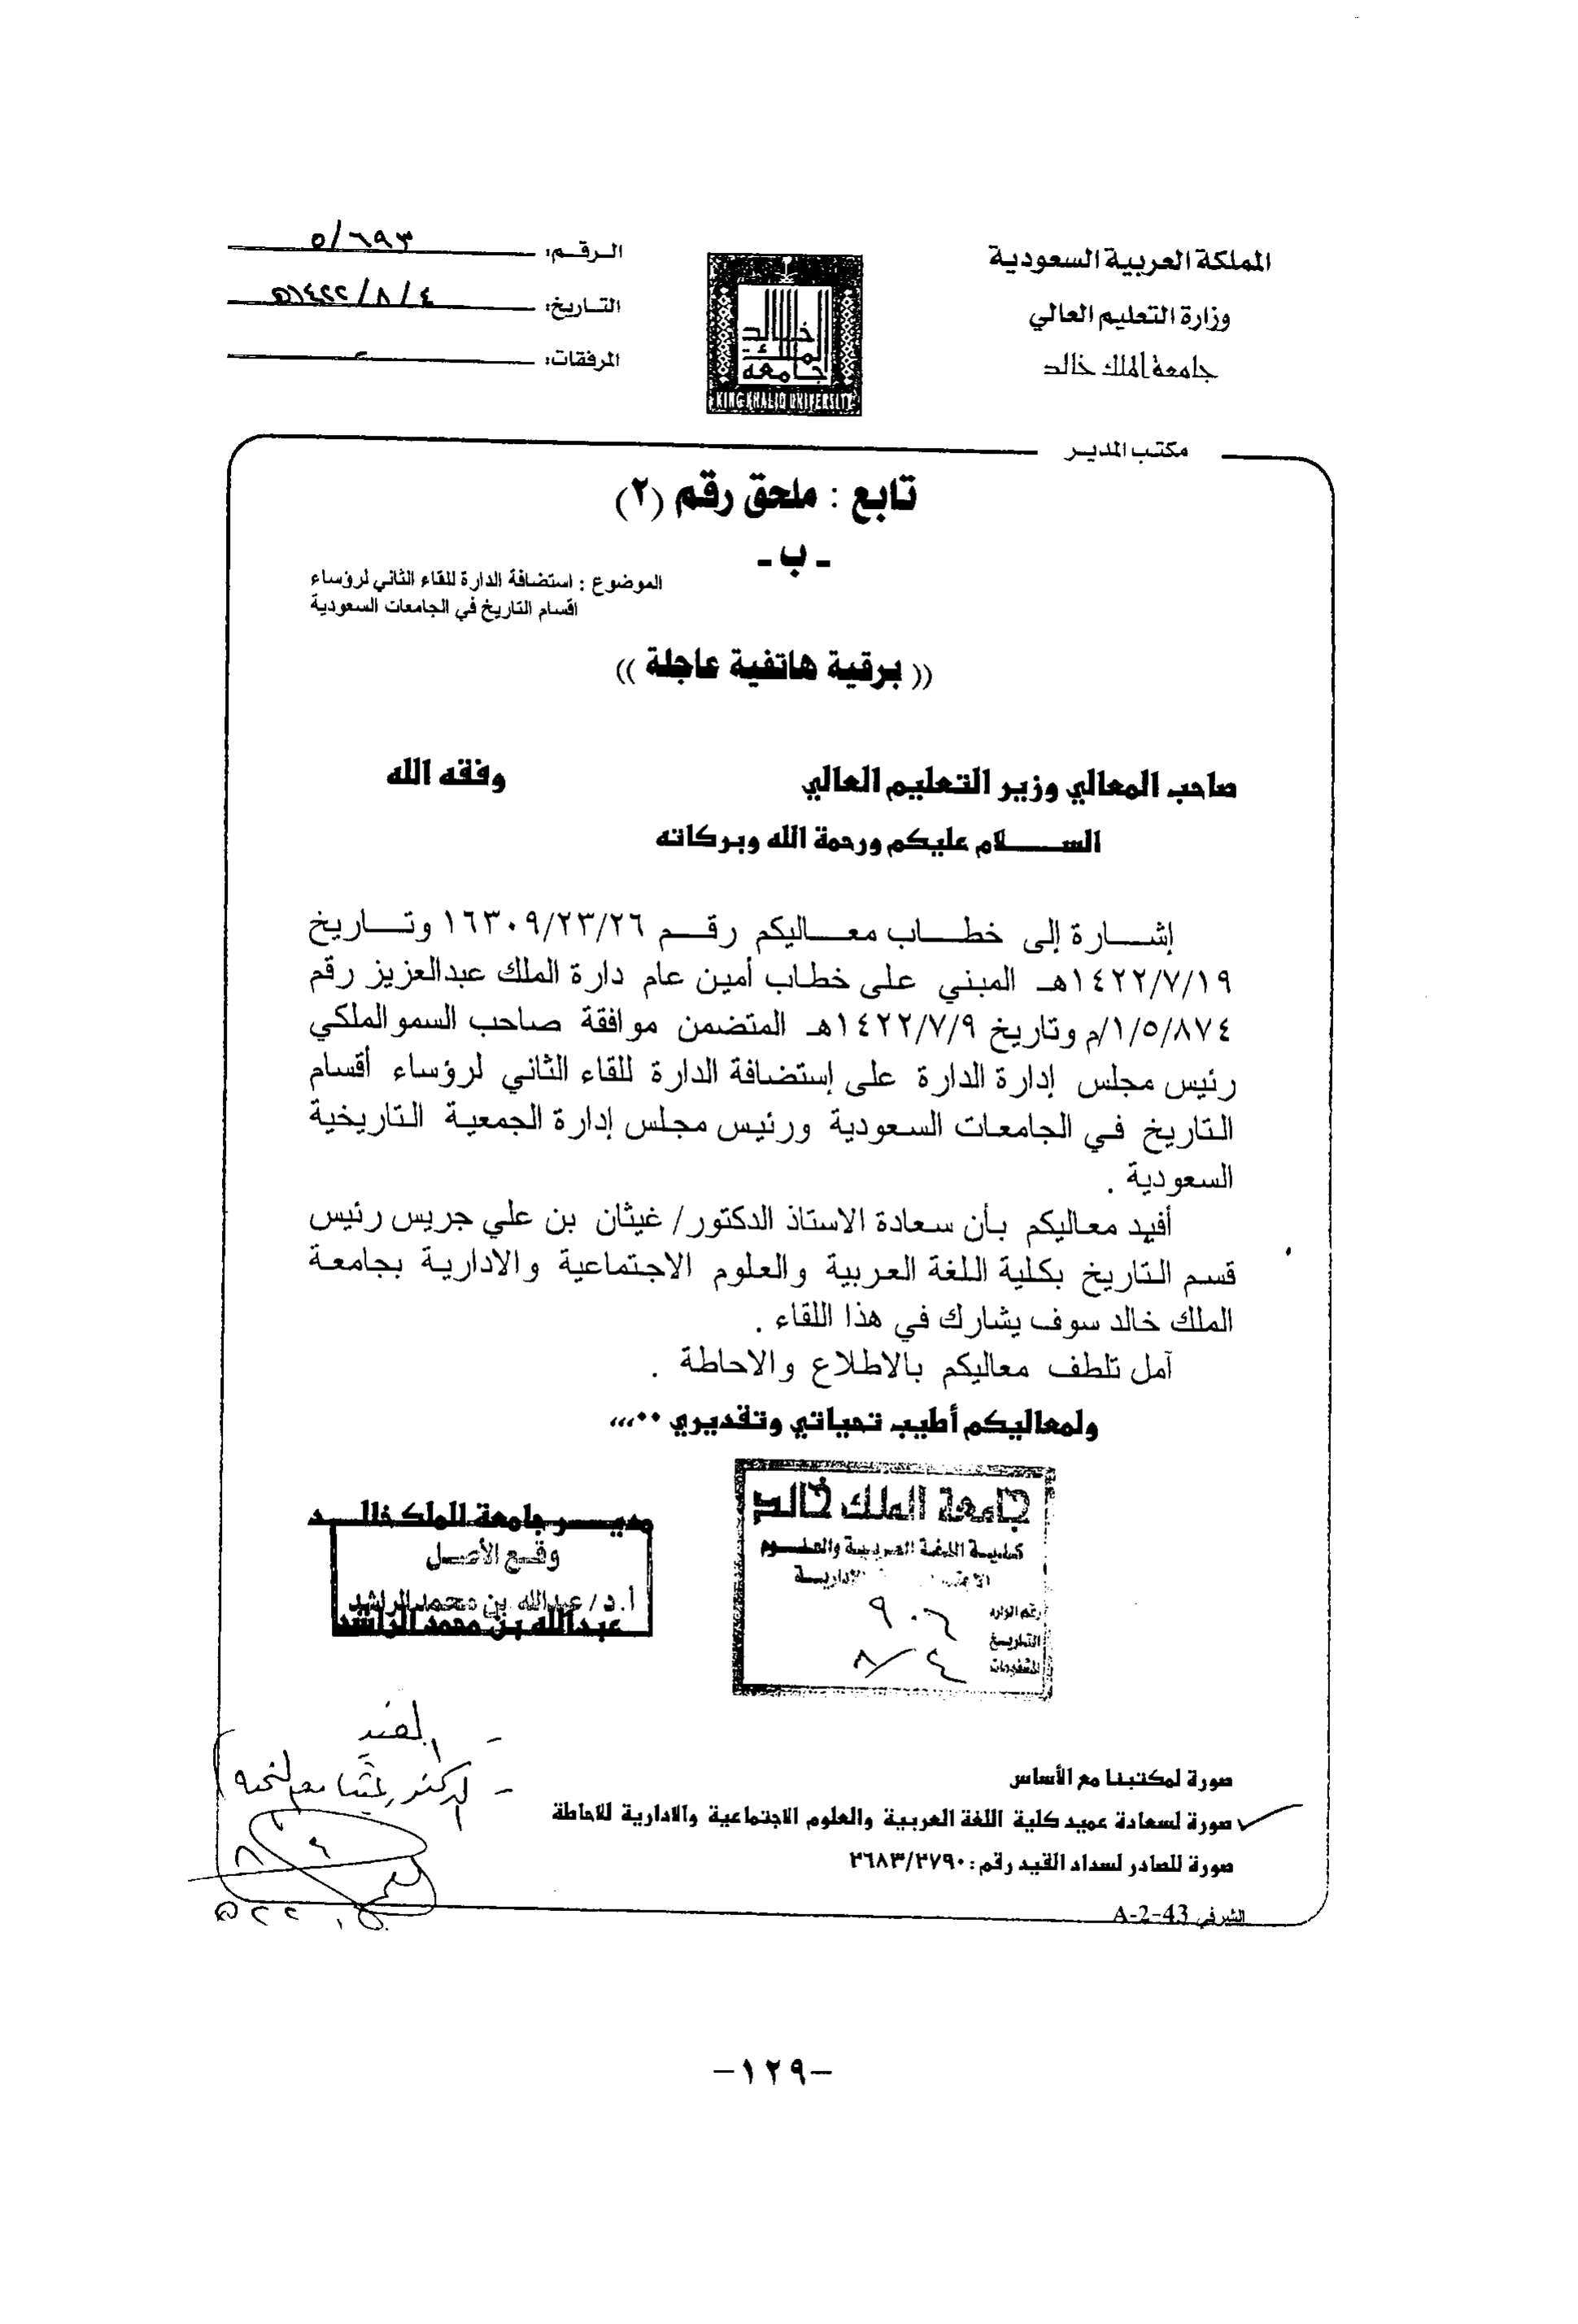 المملكة العربية السعودية
وزارة التعليم العالي
جامعة الملك خالد
جامعة الملك خالد
KING KHALID UNIVERSITY
الرقم: ٥/٦٩٣
التاريخ: ١٤٢٢/٨/٤هـ
المرفقات:
مكتب المدير
تابع : ملحق رقم (٢)
- ب -
الموضوع : استضافة الدارة للقاء الثاني لرؤساء
اقسام التاريخ في الجامعات السعودية
(( برقية هاتفية عاجلة ))
صاحب المعالي وزير التعليم العالي وفقه الله
الســــلام عليكم ورحمة الله وبركاته
إشارة إلى خطاب معاليكم رقم ١٦٣٠٩/٢٣/٢٦ وتاريخ
١٤٢٢/٧/١٩هـ المبني على خطاب أمين عام دارة الملك عبدالعزيز رقم
١/٥/٨٧٤/م وتاريخ ١٤٢٢/٧/٩هـ المتضمن موافقة صاحب السمو الملكي
رئيس مجلس إدارة الدارة على إستضافة الدارة للقاء الثاني لرؤساء أقسام
التاريخ في الجامعات السعودية ورئيس مجلس إدارة الجمعية التاريخية
السعودية .
أفيد معاليكم بأن سعادة الاستاذ الدكتور/ غيثان بن علي جريس رئيس
قسم التاريخ بكلية اللغة العربية والعلوم الاجتماعية والادارية بجامعة
الملك خالد سوف يشارك في هذا اللقاء .
آمل تلطف معاليكم بالاطلاع والاحاطة .
ولمعاليكم أطيب تحياتي وتقديري ٠٠,,,
مديـــر جامعة الملك خالـــد
وقع الأصل
أ.د/ عبدالله بن محمد الراشد
عبدالله بن محمد الراشد
جامعة الملك خالد
كلية اللغة العربية والعلوم
الادارية
رقم الوارد ٩٠٦
التاريخ ٨/٤
صورة لمكتبنا مع الأساس
صورة لسعادة عميد كلية اللغة العربية والعلوم الاجتماعية والادارية للاحاطة
صورة للصادر لسداد القيد رقم: ٢٦٨٣/٢٧٩٠
الشرفي A-2-43
-١٢٩-